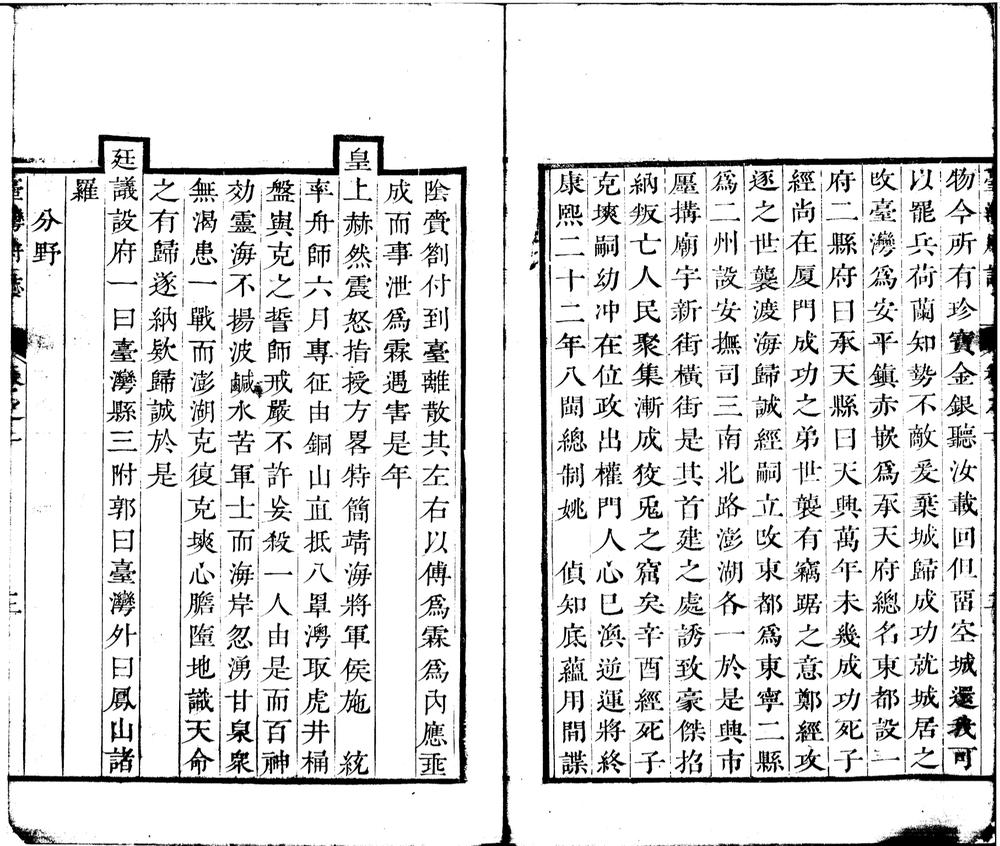 物今所有珍寶金銀聽汝載回但畱空城還我可
以罷兵荷蘭知勢不敵爰棄城歸成功就城居之
攺臺灣爲安平鎮赤嵌爲承天府總名東都設一
府二縣府曰承天縣曰天興萬年未幾成功死子
經尚在厦門成功之弟世襲有竊踞之意鄭經攻
逐之世襲渡海歸誠經嗣立攺東都爲東寧二縣
爲二州設安撫司三南北路澎湖各一於是興市
廛搆廟宇新街橫街是其首建之處誘致豪傑招
納叛亡人民聚集漸成狡兎之窟矣辛酉經死子
克塽嗣幼冲在位政出權門人心巳渙逆運將終
康熙二十二年八閩總制姚　偵知底蘊用間諜
陰賷劄付到臺離散其左右以傅爲霖爲內應垂
成而事泄爲霖遇害是年
皇上赫然震怒指授方畧特簡靖海將軍侯施　統
率舟師六月專征由銅山直抵八罩灣取虎井桶
盤與克之誓師戒嚴不許妄殺一人由是而百神
効靈海不揚波鹹水苦軍士而海岸忽湧甘泉衆
無渴患一戰而澎湖克復克塽心膽墮地識天命
之有歸遂納欵歸誠於是
廷議設府一曰臺灣縣三附郭曰臺灣外曰鳳山諸
羅
分野